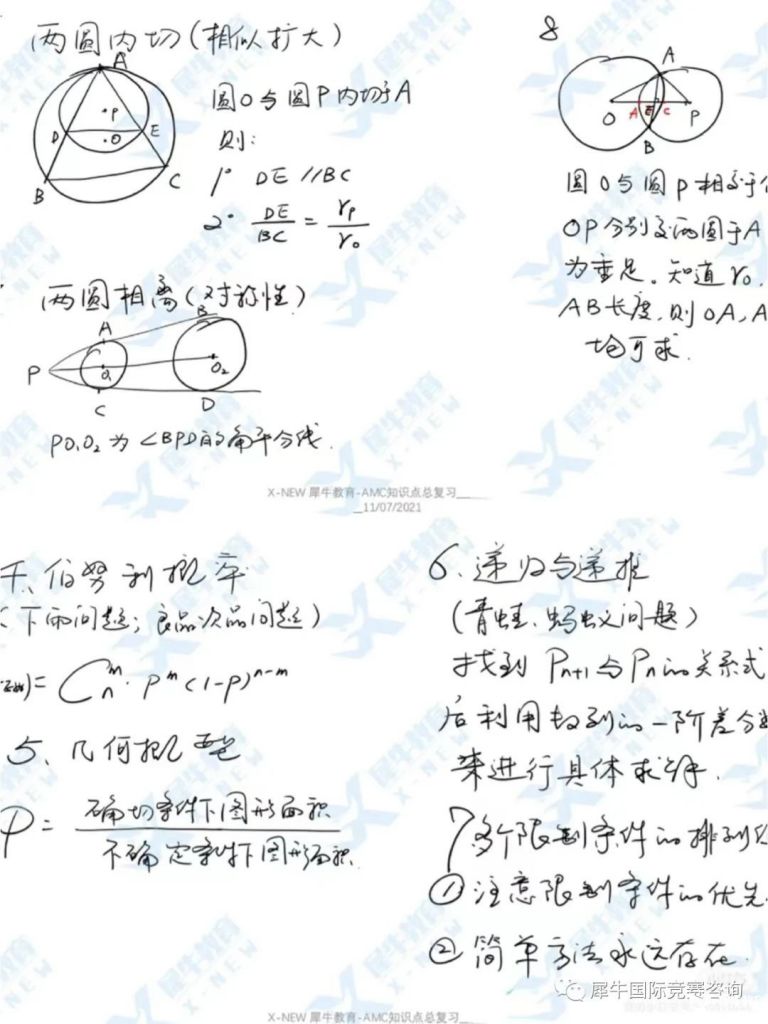 两圆内切(相似扩大)
A
P
O
D
E
B
C
圆O与圆P内切于A
则:
1° DE//BC
2° DE/BC = rp/ro
8
A
O
A
E
C
P
B
圆O与圆P相交于
OP分别交两圆于A
为垂足。知道ro,
AB长度,则OA,A
均可求.
两圆相离(对称性)
A
B
P
O1
O2
C
D
PO1O2为∠BPD的角平分线.
X-NEW 犀牛教育-AMC知识点总复习__
__11/07/2021
伯努利概率
(下雨问题;良品次品问题)
)= Cnm·pm(1-p)n-m
5、几何概型
P = 确切条件下图形面积/不确定条件下图形面积
6、递归与递推
(青蛙、蚂蚁问题)
找到Pn+1与Pn的关系式
后利用数列的一阶差分
来进行具体求解.
7多个限制条件的排列
①注意限制条件的优先
②简单方法永远存在.
犀牛国际竞赛咨询
X-NEW 犀牛教育-AMC知识点总复习__
犀牛教育
X-NEW